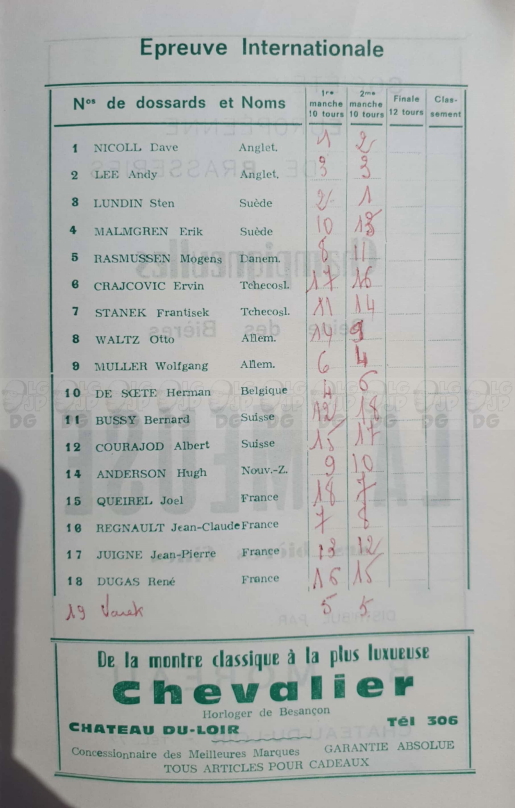 Epreuve Internationale
Nos de dossards et Noms 1re manche 10 tours 2me manche 10 tours Finale 12 tours Clas- sement
1 NICOLL Dave Anglet. 1 2
2 LEE Andy Anglet. 3 3
3 LUNDIN Sten Suède 2 1
4 MALMGREN Erik Suède 10 13
5 RASMUSSEN Mogens Danem. 8 11
6 CRAJCOVIC Ervin Tchecosl. 17 16
7 STANEK Frantisek Tchecosl. 11 14
8 WALTZ Otto Allem. 14 9
9 MULLER Wolfgang Allem. 6 4
10 DE SŒTE Herman Belgique 4 6
11 BUSSY Bernard Suisse 12 18
12 COURAJOD Albert Suisse 15 17
14 ANDERSON Hugh Nouv.-Z. 9 10
15 QUEIREL Joel France 18 7
16 REGNAULT Jean-Claude France 7 8
17 JUIGNE Jean-Pierre France 13 12
18 DUGAS René France 16 15
19 5 5
De la montre classique à la plus luxueuse
Chevalier
Horloger de Besançon
CHATEAU DU-LOIR Tél 306
Concessionnaire des Meilleures Marques GARANTIE ABSOLUE
TOUS ARTICLES POUR CADEAUX